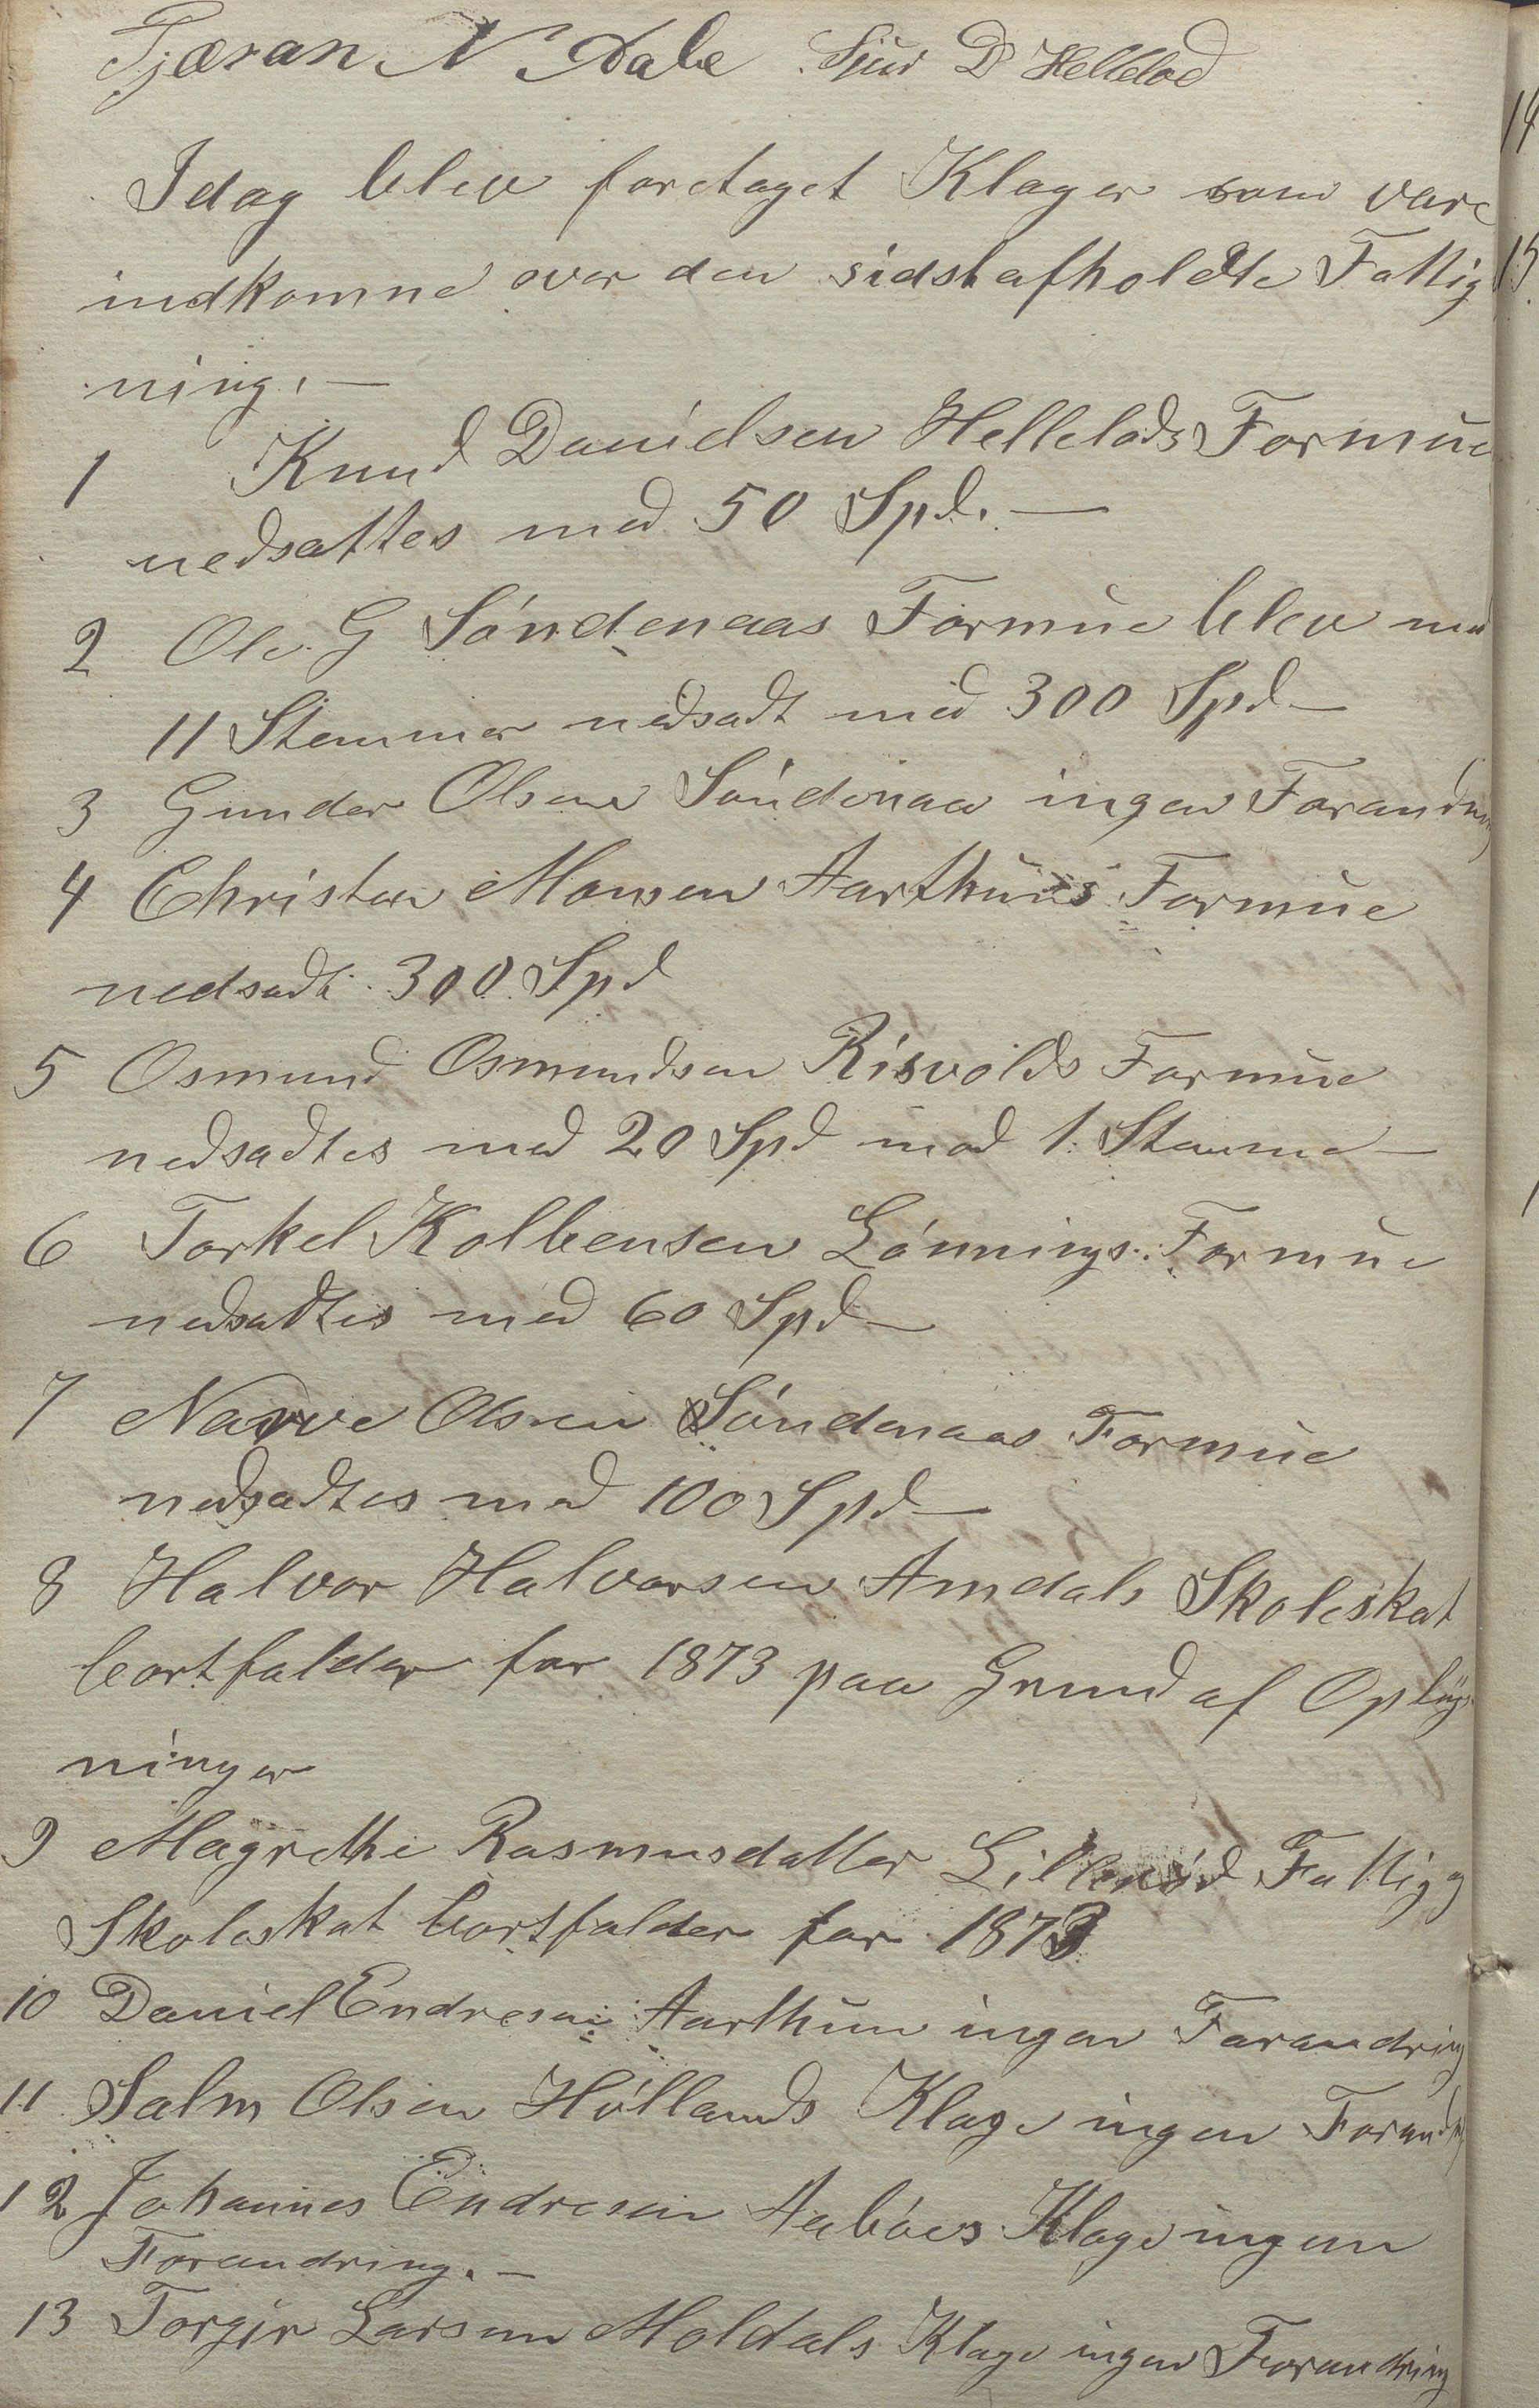 Tjæran N Dale Sjur D Hellelod
Idag blev foretaget Klager som vare
indkomne over den sidst afholdte Fattig
ning. —
1 Knud Danielsen Hellelods Formue
nedsattes med 50 Spd. —
2 Ole G Söndenaas Formue blev med
11 Stemmer nedsadt med 300 Spd —
3 Gunder Olsen Söndenaa ingen Forandring
4 Christen Monsen Aarthuns Formue
nedsadt 300 Spd
5 Osmund Osmundsen Risvolds Formue
nedsadtes med 20 Spd mod 1. Stemme —
6 Torkel Kolbensen Lönnings Formue
nedsadtes med 60 Spd —
7 Narve Olsen Söndenaas Formue
nedsadtes med 100 Spd —
8 Halvor Halvorsen Amdals Skoleskat
bortfalder for 1873 paa Grund af Oplys
ninger
9 Magrethe Rasmusdatter Lillenöd Fattig g
Skoleskat bortfalder for 1873
10 Daniel Endresen Aarthun ingen Forandring
11 Salm Olsen Höllands Klage ingen Forandring
12 Johannes Endresen Aaböes Klage ingen
Forandring. —
13 Torger Larsen Moldals Klage ingen Forandring
14
15